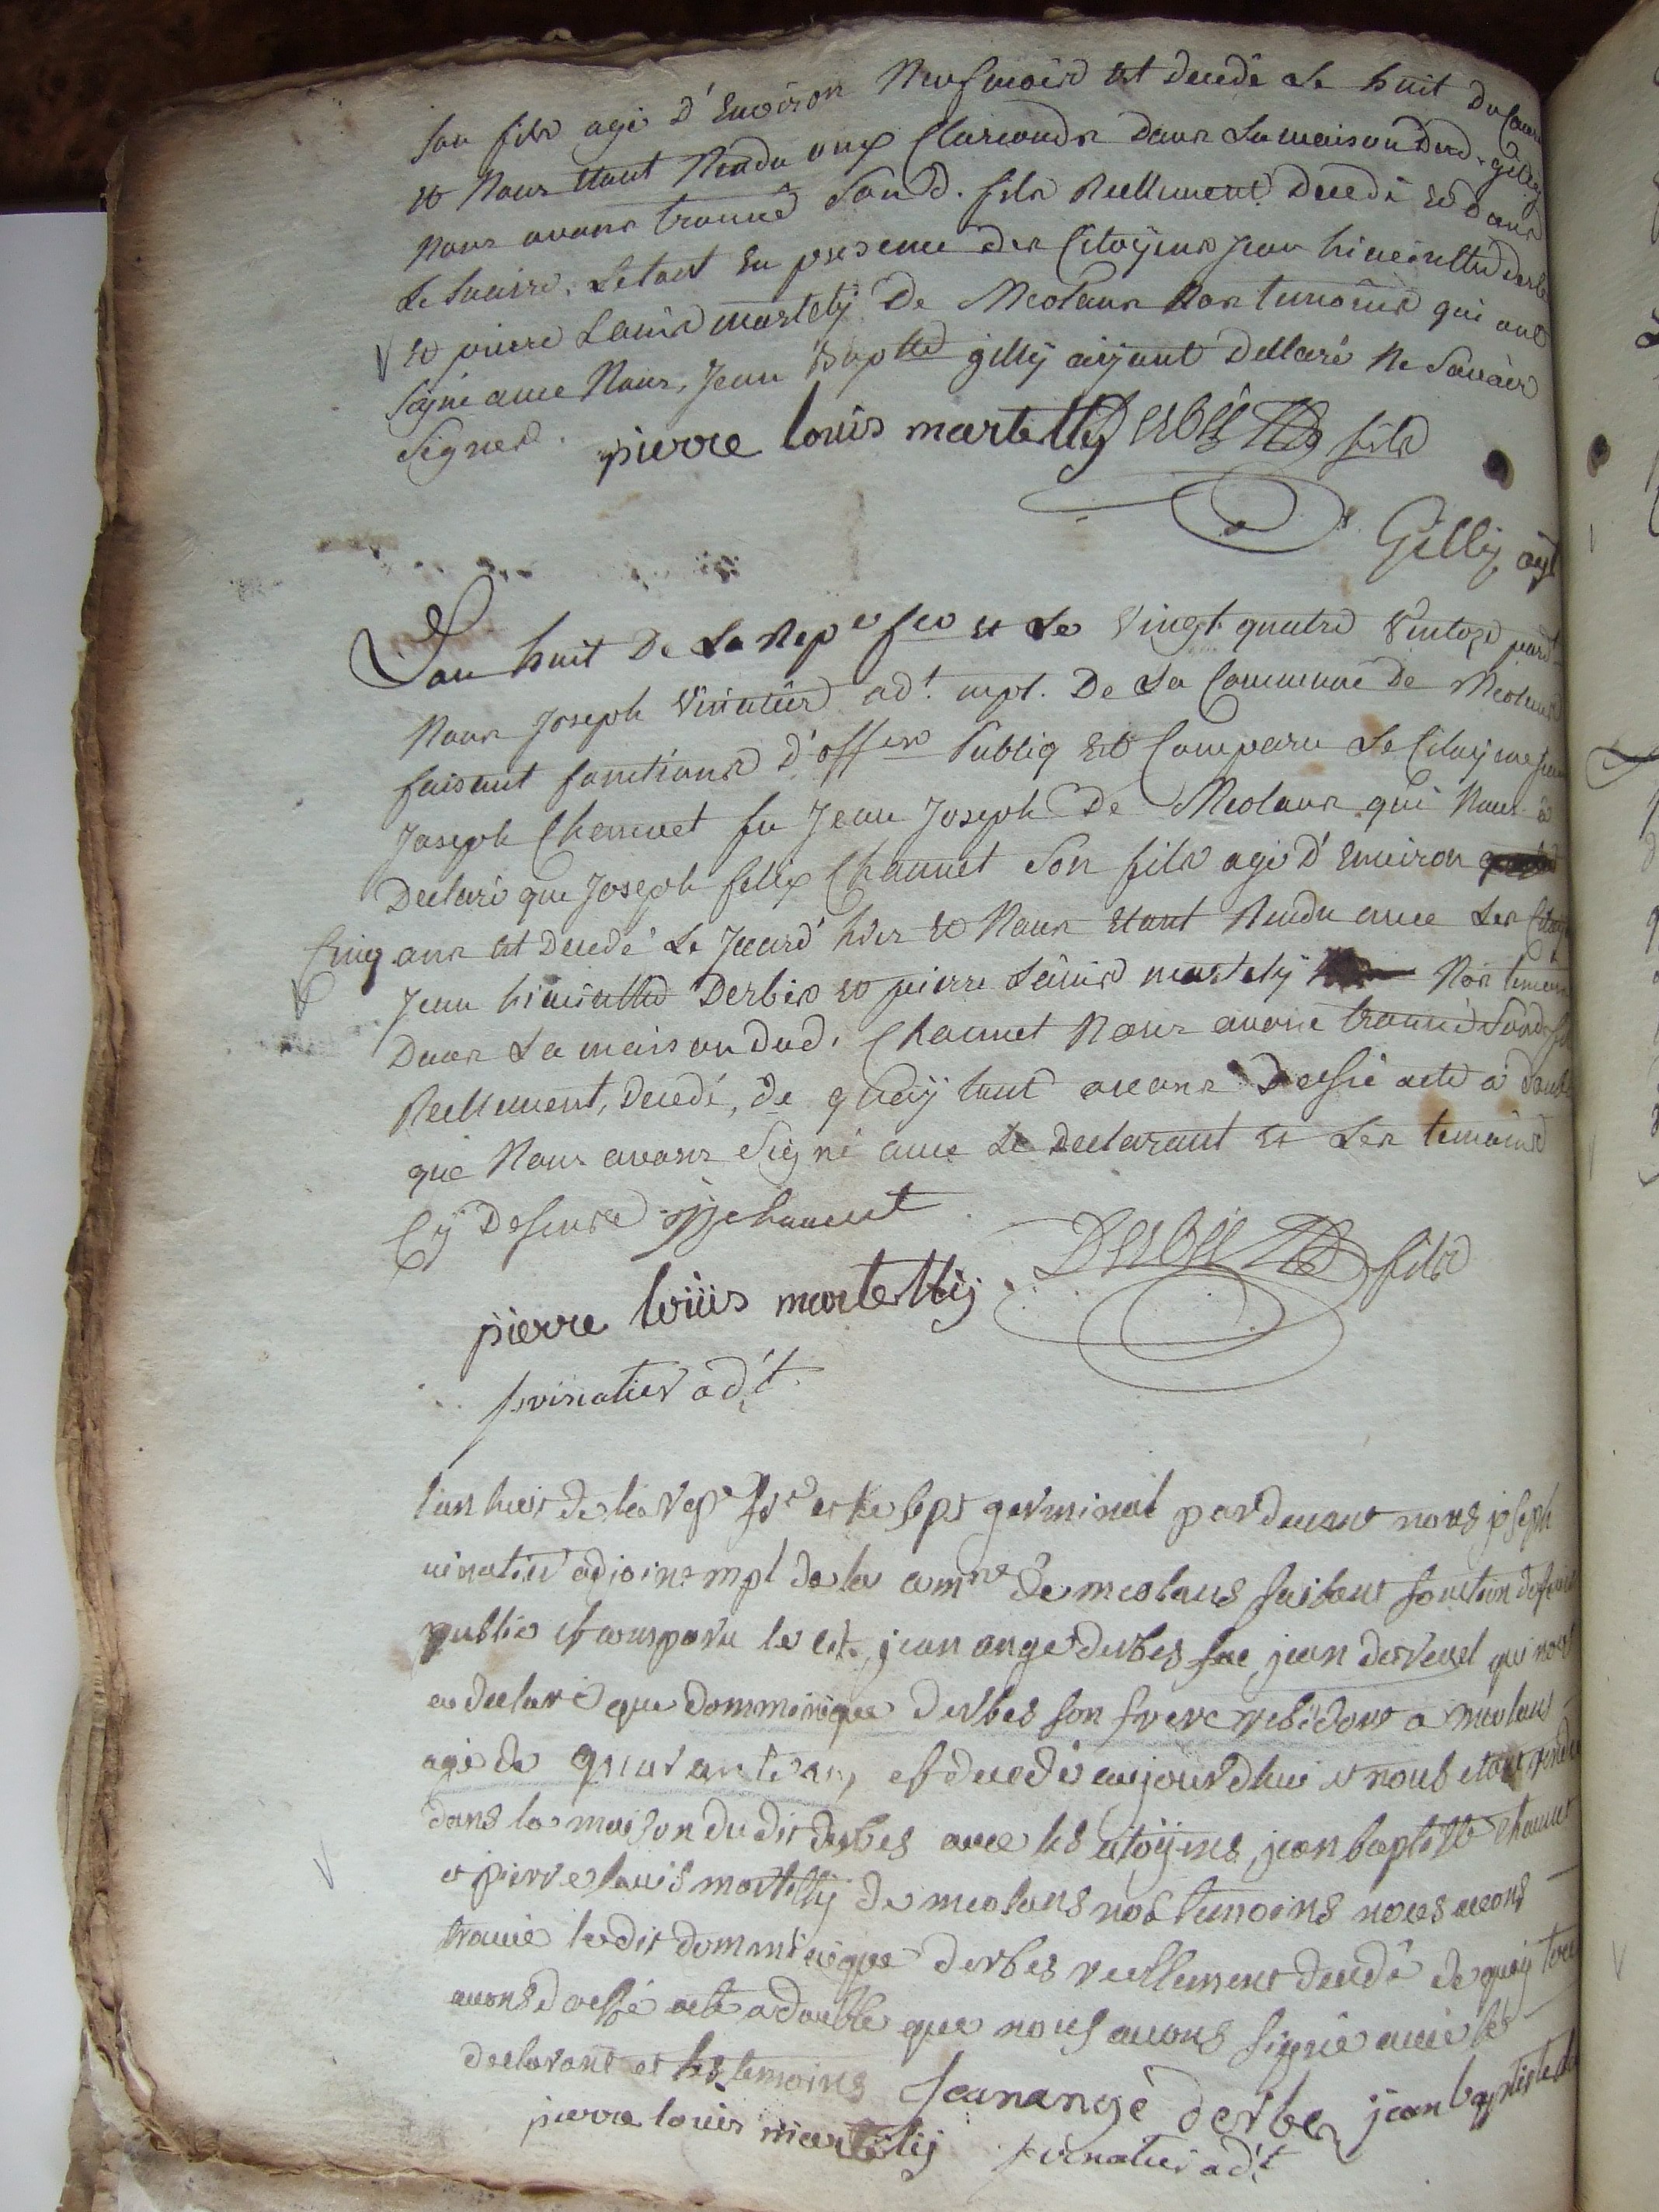 son fils agé d'Environ Neuf mois est decedé Le huit du
et Nous étant Rendu aux Clarionds dans La maison dud. gilly
Nous avons trouvé Son d. fils Reellement decedé et dans
Le Suaire. Le tout En presence des Citoyens Jean hiacinthe derbe
et pierre Louis martely De Meolans Nos temoins qui ont
Signé avec Nous, Jean Baptte gilly aÿant dellaré Ne Savoir
Signer.
pierre louis martellÿ Derbès fils
Gilly agt
L'an huit De La Repe fse et Le Vingt quatre Ventose pardt
Nous Joseph Vinatier adt. mpl. De La Commune De Meolans
faisant fonctions d'offier Publiq Est Comparu Le Citoyen jean
Joseph Chauvet fu Jean Joseph De Meolans qui Nous à
Declaré que Joseph felix Chauvet Son fils agé d'Environ
Cinq ans est Decedé Le Jourd'hier et Nous étant Rendu avec Les Citoy
Jean hiacinthe Derbés et pierre Louis martelÿ Nos temoins
Dans La maison dud. Chauvet Nous avons trouvé Sond. fils
Reellement, decedé, de quoÿ tout avons Dressé acte à double
que Nous avons Signé avec Le Declarant et Les temoins
Cÿ Dessus jjchauvet
pierre loüis martellÿ Derbès fils
jvinatier adt.
l'an huit de la repe fse et le sept germinal pardevant nous joseph
vinatier adjoint mpl de la comne de meolans faisant fonction d'oficier
public est comparu le cit. jean ange derbes feu jean du revel qui nous
a declaré que domminique derbes son frere residant a meolans
agé de quarante ans, est decedé aujourdhui et nous etant rendu
dans la maison du dit derbes avec les citoÿens jean baptiste chauvet
et pierre louis martellÿ de meolans nos temoins nous avons
trouvé ledit domminique derbes reellement decedé de quoÿ tout
avons dressé acte a double que nous avons signé avec le
declarant et les temoins jeanange derbes jean baptiste
pierre louis martellÿ jvinatier adt